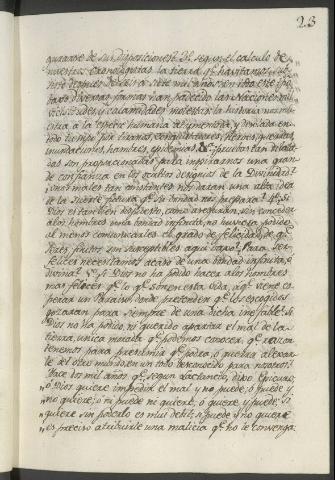 23
quexarse de sus Disposiciones? Dl. segun el calculo de
nuestros Cronologistas la tierra q.e havitamos, sub-
siste despues de seis, ò siete mil años: en todo este
bajo diversas formas han padecido las Naciones mil
vicisitudes, y calamidades molestas: la historia nos mu-
estra à la Especie humana atormentada, y desolada en
todo tiempo por tiranos, conquistadores, Heroes, guerras,
inundaciones, hambres, epidemias, &c. pruebas tan dilata-
das son proporcionadas para inspirarnos una gran-
de confianza en los ocultos designios de la Divinidad?
unos males tan constantes nos daran una alta idea
de la suerte futura, q.e su bondad nos prepara? Si
Dios es tan bien dispuesto, como aseguran, sin conceder
à los hombres una bondad infinita, no huviera podido
al menos comunicarles el grado de felicidad, de q.e
Seres finitos son susceptibles aqui bajo? Para ser
felices necesitamos acaso de una bondad infinita, ò
divina? Si Dios no ha podido hacer à los hombres
mas felices q.e lo q.e son en esta vida, à q.e viene es-
perar un Paraiso donde pretenden q.e los escogidos
gozaran para siempre de una dicha inefable? Si
Dios no ha podido, ni querido apartar el mal de la
tierra, unica morada q.e podemos conocer, q.e razon
tenemos para presumir q.e podra, ò querra alexar-
le del otro mundo, en un todo desconocido para nosotros?
Hace dos mil años, q.e segun Lactancio, dixo Epicuro,
,, ò Dios quiere impedir el mal y no puede; ò puede y
,, no quiere; ò ni puede ni quiere, ò quiere y puede: si
,, quiere sin poderlo es mui debil; si puede y no quiere
,, es preciso atribuirle una malicia q.e no le convenga: